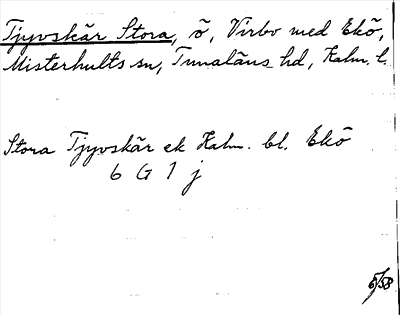 Tjyvskär Stora, ö, Virbo med Ekö,
Misterhults sn, Tunaläns hd, Kalm. l.
Stora Tjyvskär ek Kalm. bl. Ekö
6 G 1 j
6/58